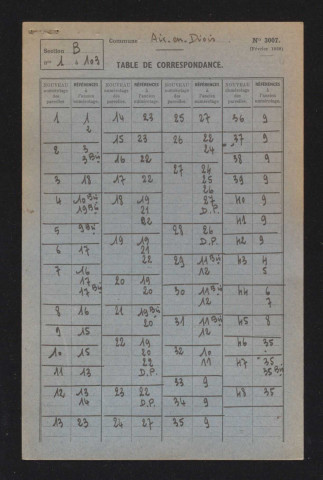 Section B
nos 1 à 103
Commune Aix-en-Diois
No 3007.
TABLE DE CORRESPONDANCE.
NOUVEAU numérotage des parcelles. RÉFÉRENCES à l'ancien numérotage. NOUVEAU numérotage des parcelles. RÉFÉRENCES à l'ancien numérotage. NOUVEAU numérotage des parcelles. RÉFÉRENCES à l'ancien numérotage. NOUVEAU numérotage des parcelles. RÉFÉRENCES à l'ancien numérotage.
1 1
2
2 3
9 Bis
3 18
4 10 Bis
19 Bis
5 9 Bis
6 17
7 16
17
17 Bis
8 16
9 15
10 15
11 13
12 13
14
13 23
14 23
15 23
16 22
17 22
18 19
21
22
19 19
21
22
20 19
20
21 19 Bis
20
22 19
20
D.P.
23 22
D.P.
24 27
25 27
26 22
24
27 24
25
26
27
D.P.
28 26
D.P.
29 11 Bis
12
30 11 Bis
12
31 11 Bis
12
32 10
11
33 9
34 9
35 9
36 9
37 9
38 9
39 9
40 9
41 9
42 9
43 4
5
44 6
7
45 8
46 35
47 35
35 Bis
48 35